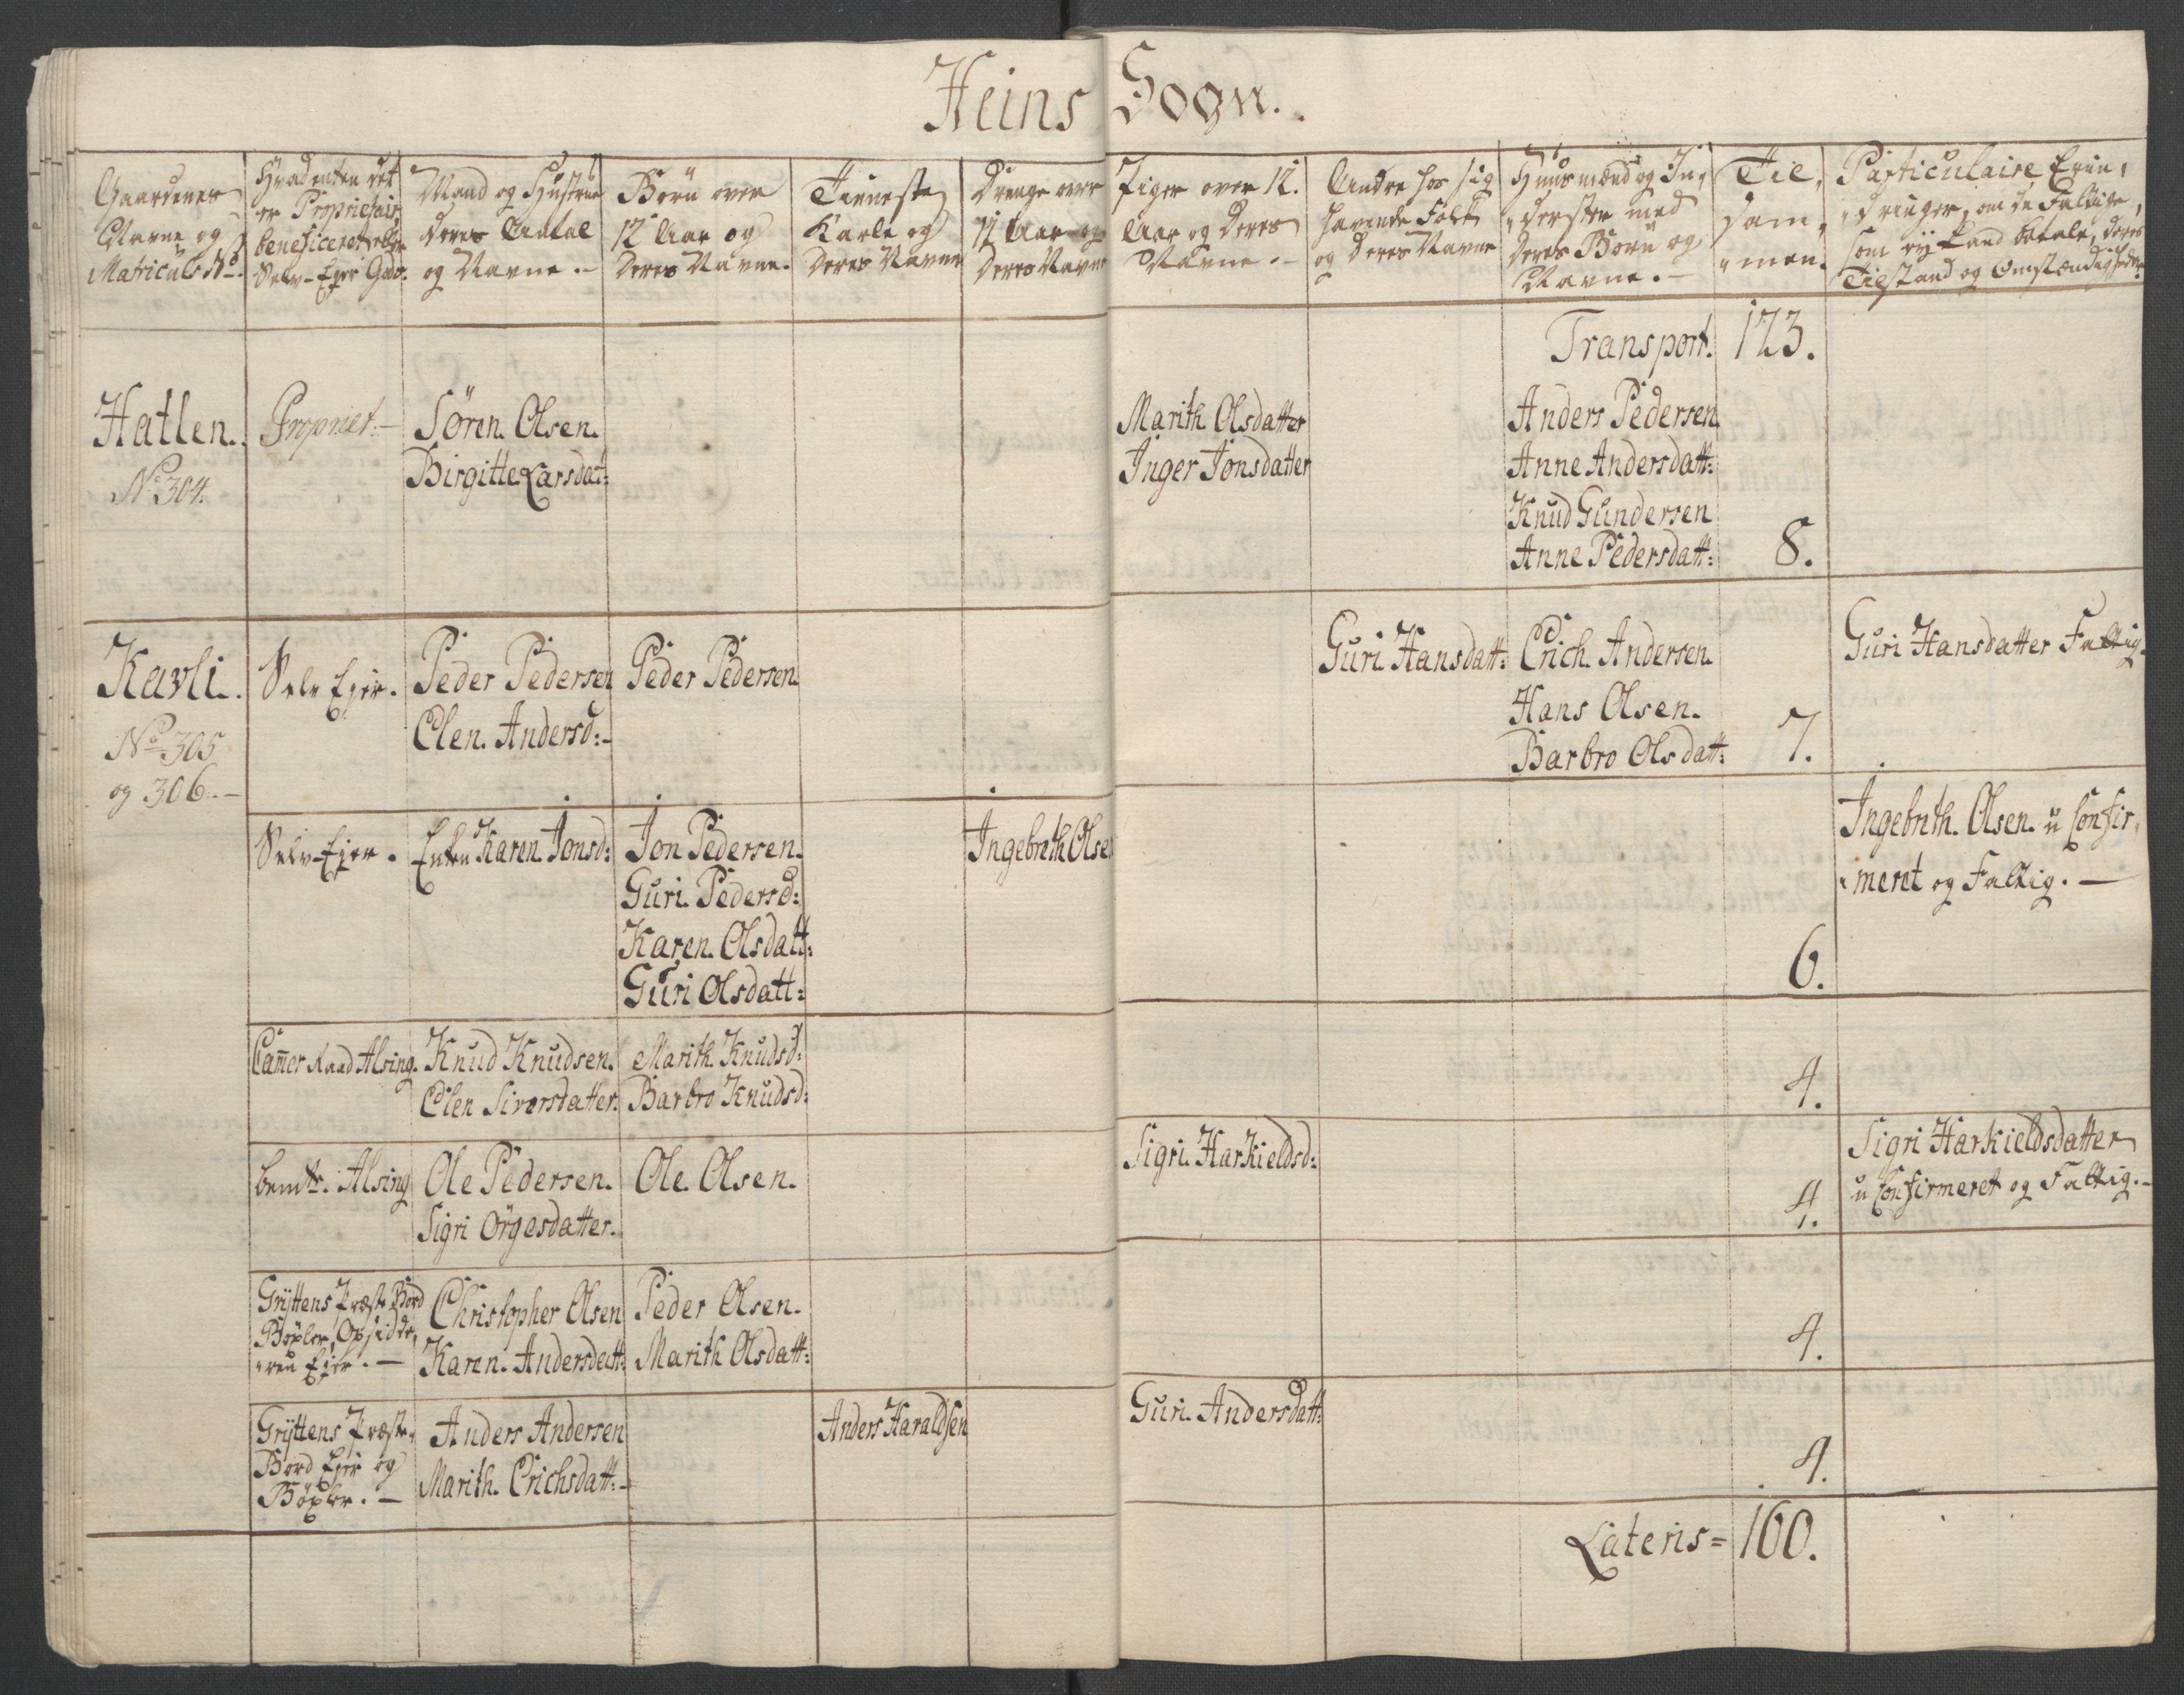 Heins Sogn.
Gaardenes
Navne og
Matriculs No.
Hvad enten det
er Proprietair
beneficeret eller
Selv-Ejer Gods.
Mand og Hustrue
deres Antal
og Navne.
Børn over
12 Aar og
deres Navne.
Tieneste
Karle og
deres Navne
Drenge over
12 Aar og
deres Navne
Piger over 12.
Aar og deres
Navne.
Andre hos sig
havende Folk
og deres Navne
Huusmænd og In-
derster med
deres Børn og
Navne.
Til-
sam-
men.
Particulaire Erin-
dringer, om de Fattige,
som ej kand betale, deres
Tilstand og Omstændigheder
Transport. 123.
Hatlen.
No 304.
Propriet:
Søren Olsen.
Birgitte Larsdat:
Marith Olsdatter
Inger Jonsdatter
Anders Pedersen
Anne Andersdatt:
Knud Gundersen
Anne Pedersdatt: 8.
Kavli.
No 305
og 306.
Selv Ejer.
Peder Pedersen
Elen Andersd:
Peder Pedersen
Guri Hansdatt:
Erich Andersen
Hans Olsen.
Barbro Olsdatt: 7.
Guri Hansdatter Fattig.
Selv-Ejer.
Enken Karen Jonsd:
Jon Pedersen.
Guri Pedersd:
Karen Olsdatt:
Guri Olsdatt:
Ingebrith Olsen
6.
Ingebrith Olsen u Confir-
meret og Fattig.
Cammer Raad Alsing.
Knud Knudsen.
Elen Siversdatter.
Marith Knudsd:
Barbro Knudsd:
4.
bemte. Alsing
Ole Pedersen.
Sigri Ørgesdatter.
Ole Olsen.
Sigri Harkieldsd:
4.
Sigri Harkieldsdatter
u Confirmeret og Fattig.
Gryttens Præste Bord
Bøxler, Opsidde-
ren Ejer.
Christopher Olsen
Karen Andersdatt:
Peder Olsen.
Marith Olsdatt:
4.
Gryttens Præste-
Bord Ejer og
Bøxler.
Anders Andersen
Marith Erichsdatt:
Anders Haraldsen
Guri Andersdatt:
4.
Lateris = 160.